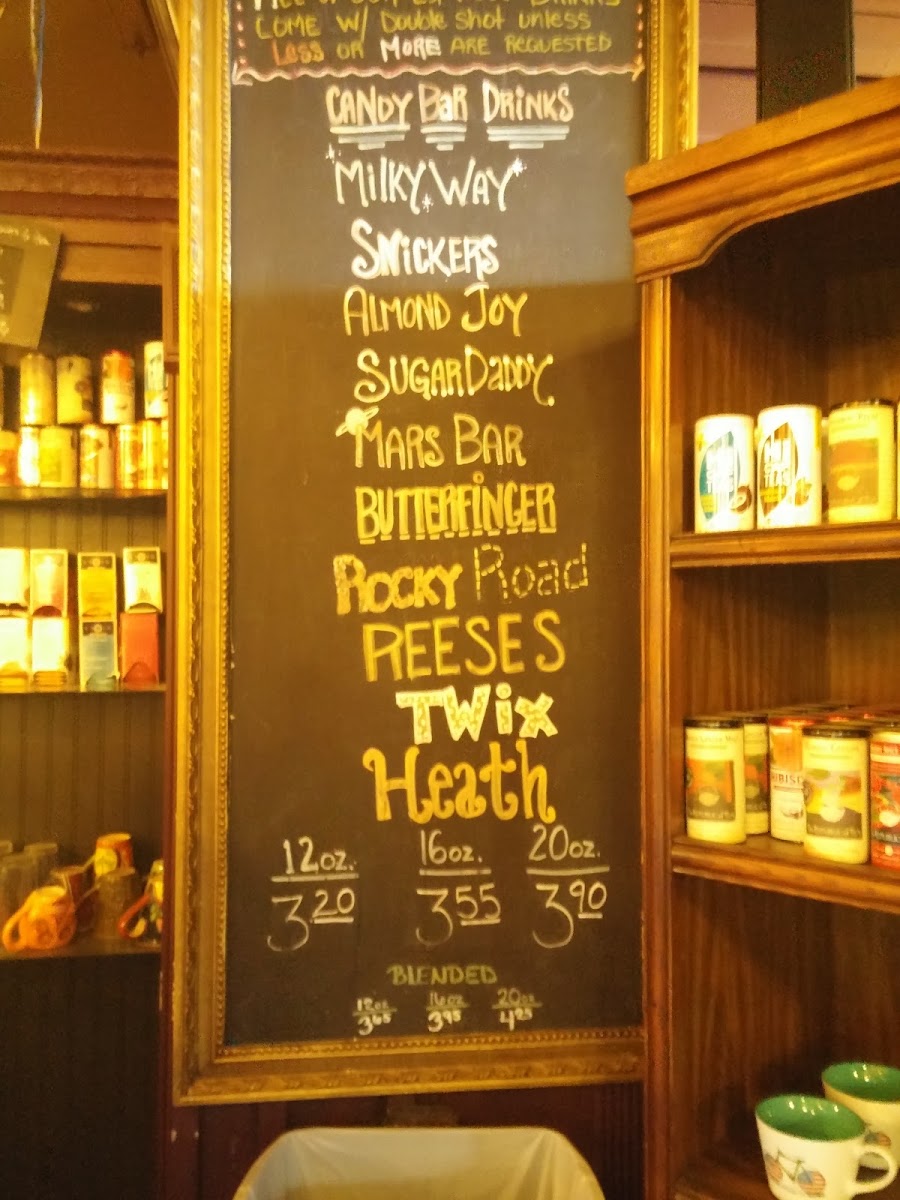 COME W/ Double shot unless
Less OR MORE ARE REQUESTED
CANDY BaR DRiNKS
MilKY WAY
SNiCKERS
ALMOND JOY
SUGAR DaDDY
MARS BAR
BUTTERFiNGER
ROCKY Road
REESES
TWix
Heath
12oz. 16oz. 20oz.
3.20 3.55 3.90
BLENDED
12oz 16oz 20oz
3.65 3.95 4.25